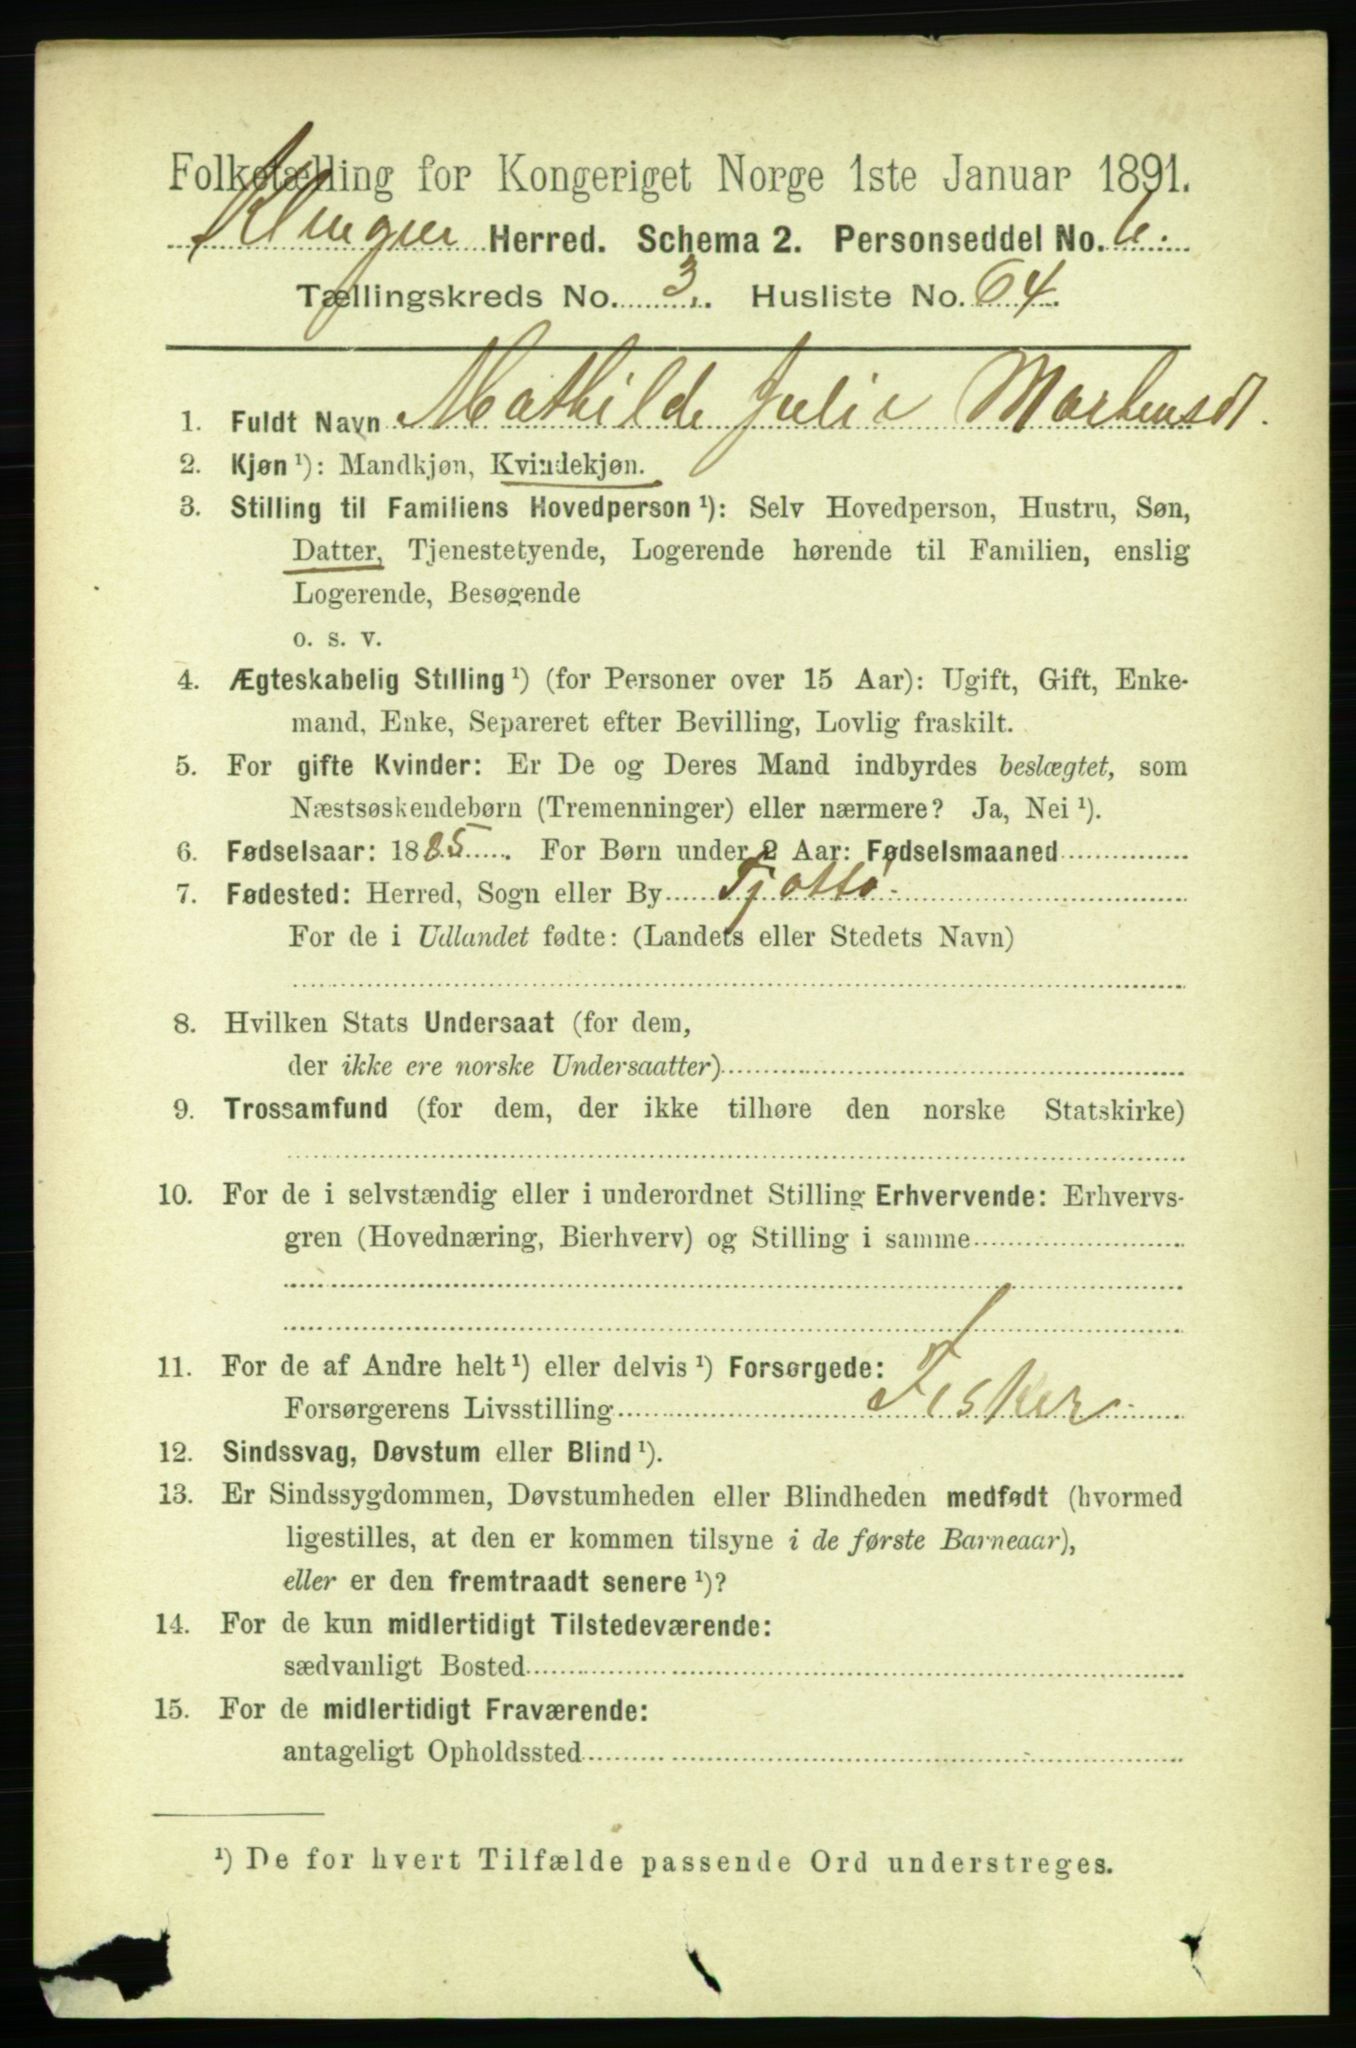 Folketælling for Kongeriget Norge 1ste Januar 1891.
Klingen Herred. Schema 2. Personseddel No. 6.
Tællingskreds No. 3. Husliste No. 64.
1. Fuldt Navn Mathilde Julie Martensdt.
2. Kjøn ¹): Mandkjøn, Kvindekjøn.
3. Stilling til Familiens Hovedperson ¹): Selv Hovedperson, Hustru, Søn,
Datter, Tjenestetyende, Logerende hørende til Familien, enslig
Logerende, Besøgende
o. s. v.
4. Ægteskabelig Stilling ¹) (for Personer over 15 Aar): Ugift, Gift, Enke-
mand, Enke, Separeret efter Bevilling, Lovlig fraskilt.
5. For gifte Kvinder: Er De og Deres Mand indbyrdes beslægtet, som
Næstsøskendebørn (Tremenninger) eller nærmere? Ja, Nei ¹).
6. Fødselsaar: 1885. For Børn under 2 Aar: Fødselsmaaned
7. Fødested: Herred, Sogn eller By Tjøttø.
For de i Udlandet fødte: (Landets eller Stedets Navn)
8. Hvilken Stats Undersaat (for dem,
der ikke ere norske Undersaatter)
9. Trossamfund (for dem, der ikke tilhøre den norske Statskirke)
10. For de i selvstændig eller i underordnet Stilling Erhvervende: Erhvervs-
gren (Hovednæring, Bierhverv) og Stilling i samme
11. For de af Andre helt ¹) eller delvis ¹) Forsørgede:
Forsørgerens Livsstilling Fisker
12. Sindssvag, Døvstum eller Blind ¹).
13. Er Sindssygdommen, Døvstumheden eller Blindheden medfødt (hvormed
ligestilles, at den er kommen tilsyne i de første Barneaar),
eller er den fremtraadt senere ¹)?
14. For de kun midlertidigt Tilstedeværende:
sædvanligt Bosted
15. For de midlertidigt Fraværende:
antageligt Opholdssted
¹) De for hvert Tilfælde passende Ord understreges.